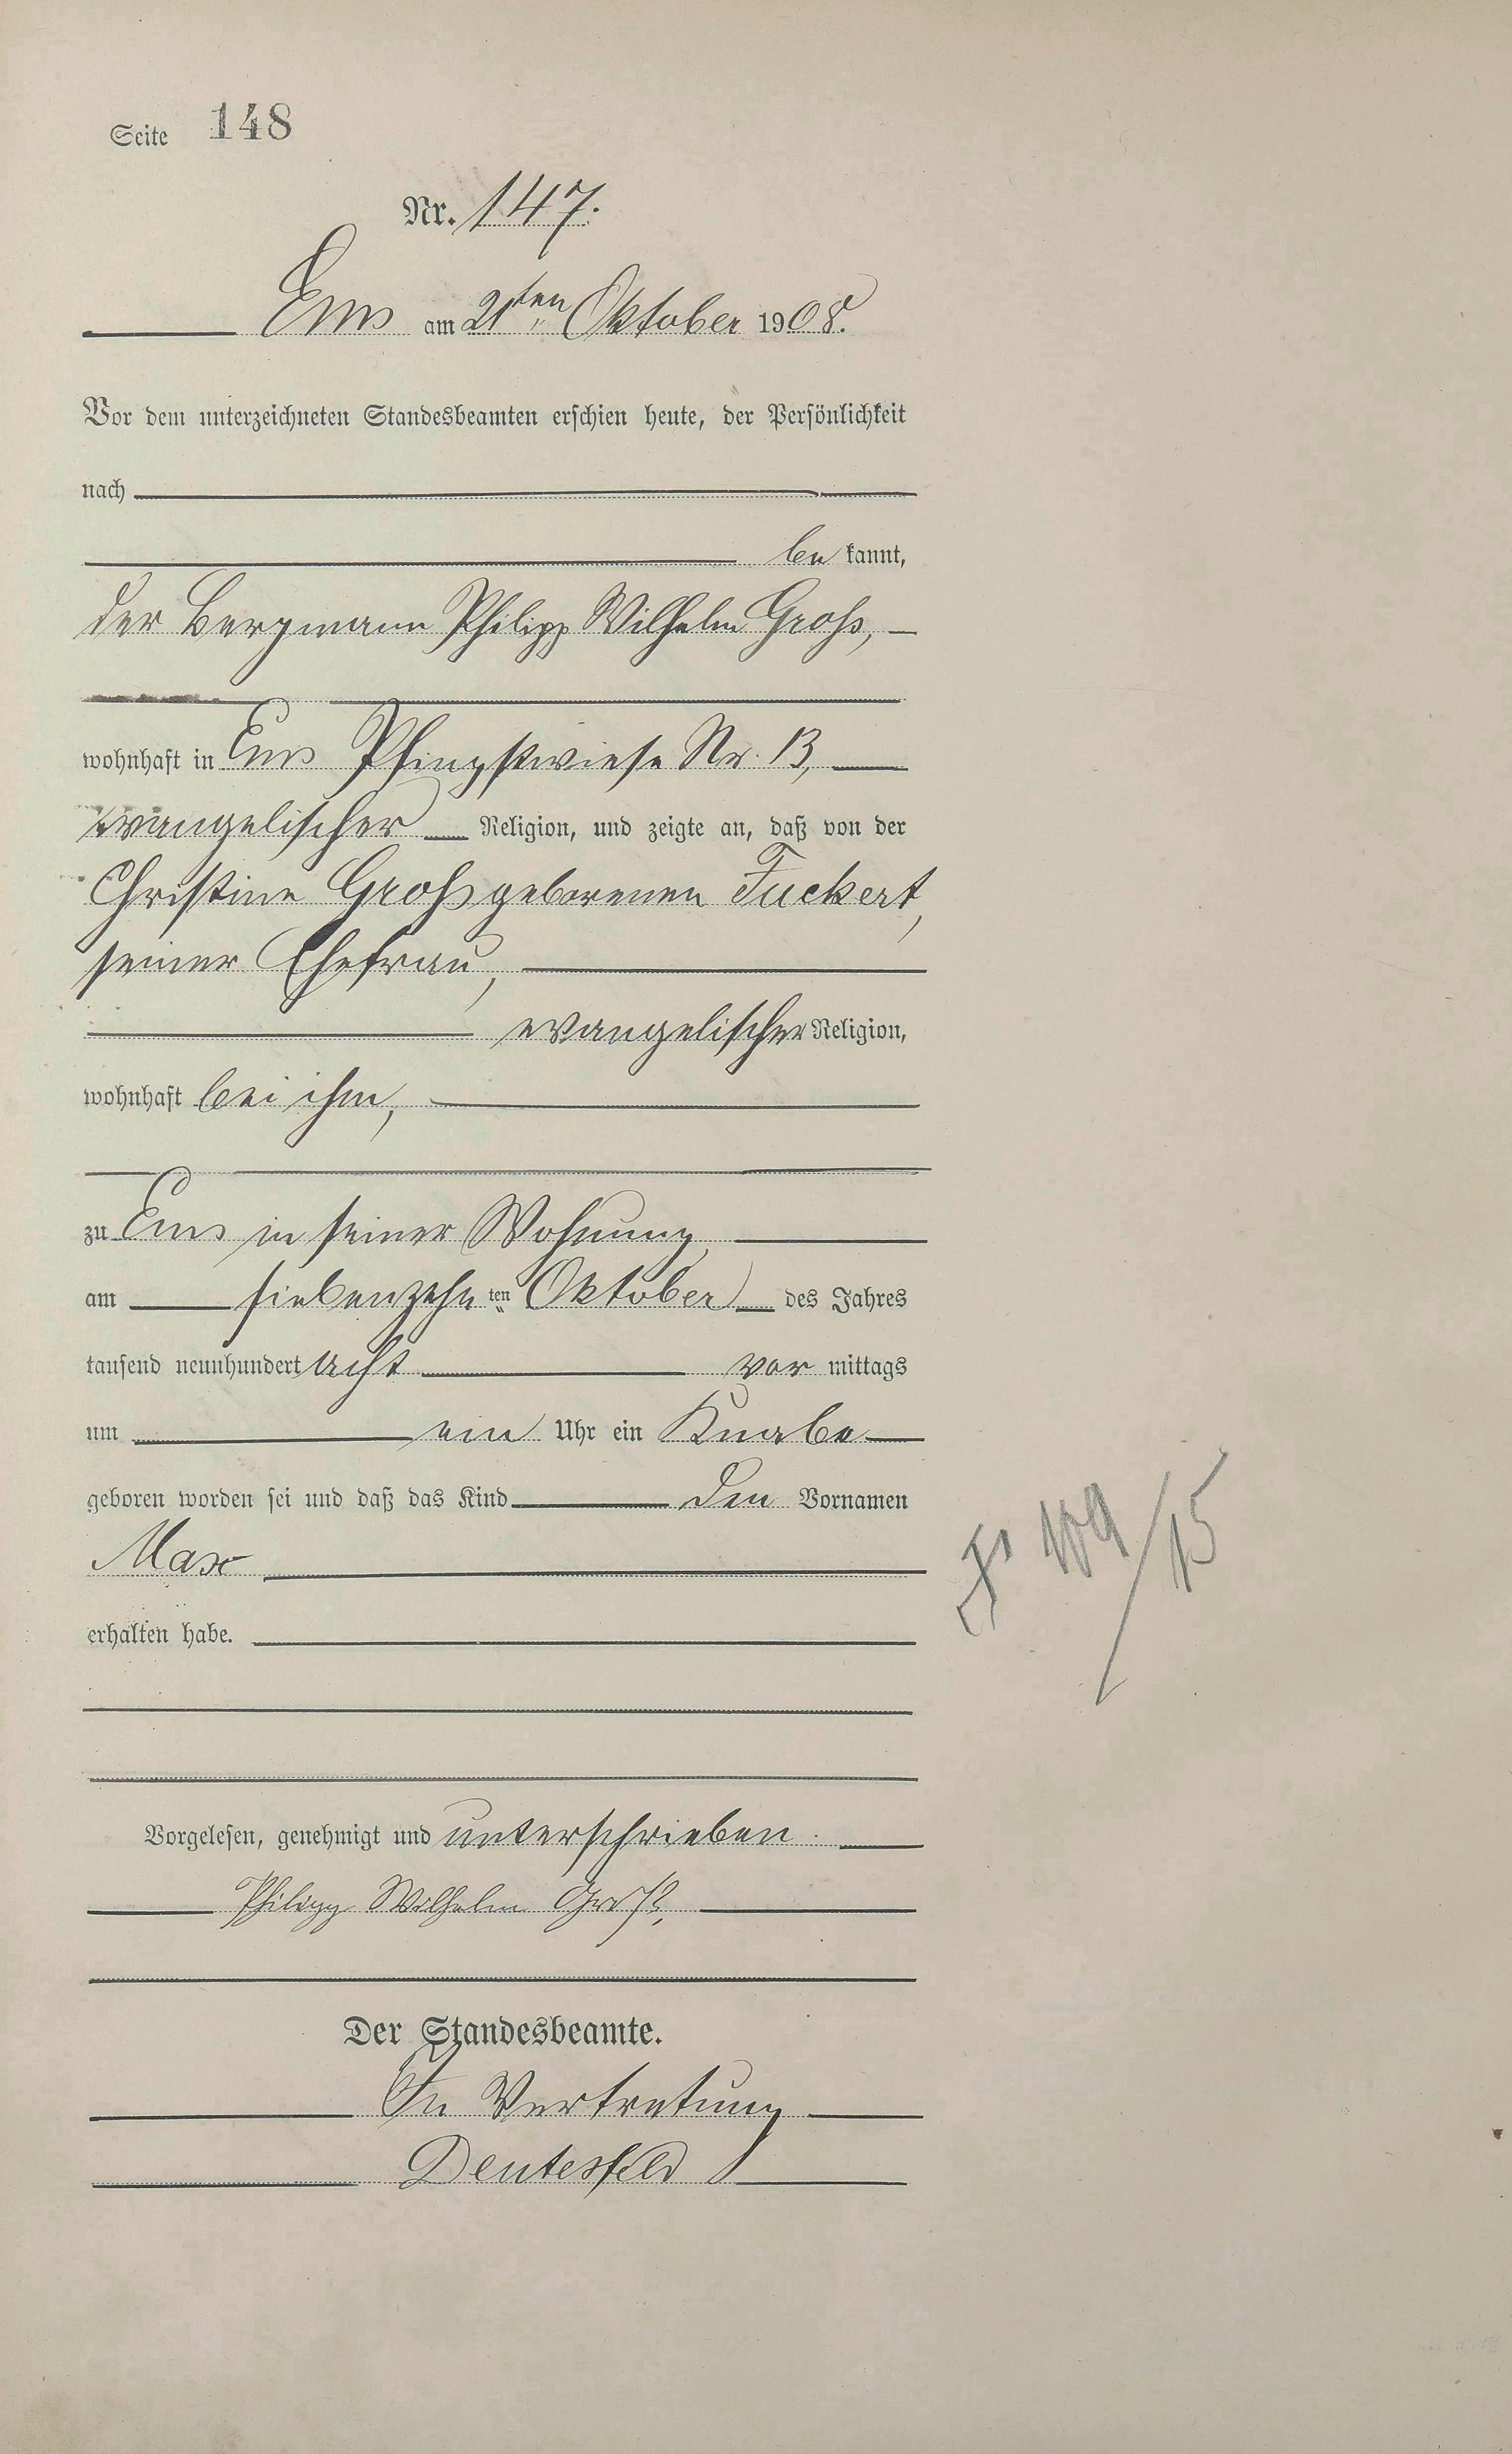 Seite 148
Nr. 147.
Ems am 21ten Oktober 1908.
Vor dem unterzeichneten Standesbeamten erschien heute, der Persönlichkeit
nach
be kannt,
der Bergmann Philipp Wilhelm Groß,
wohnhaft in Ems Pfingstwiese Nr. 13,
evangelischer Religion, und zeigte an, daß von der
Christine Groß geborenen Tuckert,
seiner Ehefrau,
evangelischer Religion,
wohnhaft bei ihm,
zu Ems in seiner Wohnung,
am siebenzehn ten Oktober des Jahres
tausend neunhundert acht vor mittags
um ein Uhr ein Knabe
geboren worden sei und daß das Kind den Vornamen
Max
erhalten habe.
Vorgelesen, genehmigt und unterschrieben.
Philipp Wilhelm Groß,
Der Standesbeamte.
In Vertretung
Deutesfeld
109/15